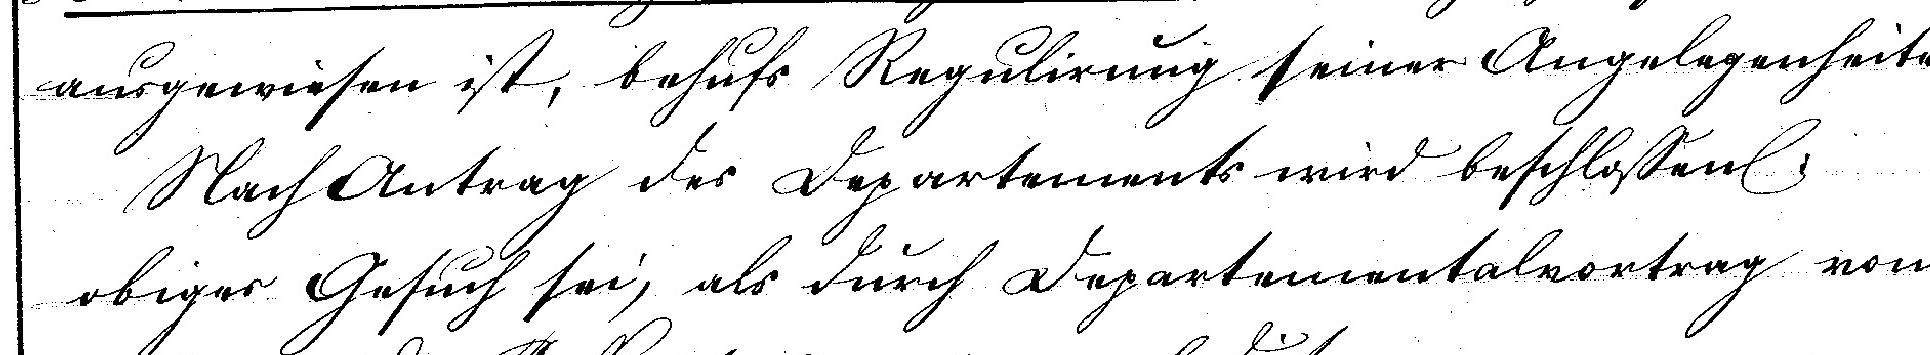 ausgewiesen ist, behufs Regulirung seiner Angelegenheite
Nach Antrag des Departements wird beschlossen:
obiges Gesuch sei, als durch Departementalvortrag vom